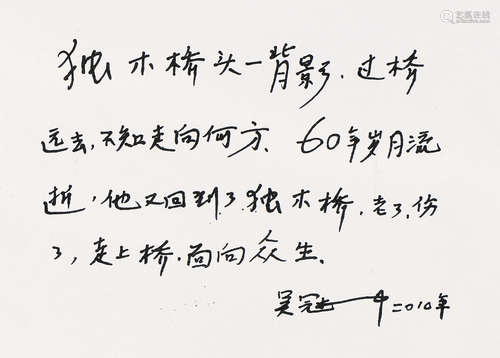 独木桥头一背影.过桥
远去,不知走向何方、60年岁月流
逝,他又回到了独木桥.老了.伤
了,走上桥.面向众生.
吴冠中二〇一〇年